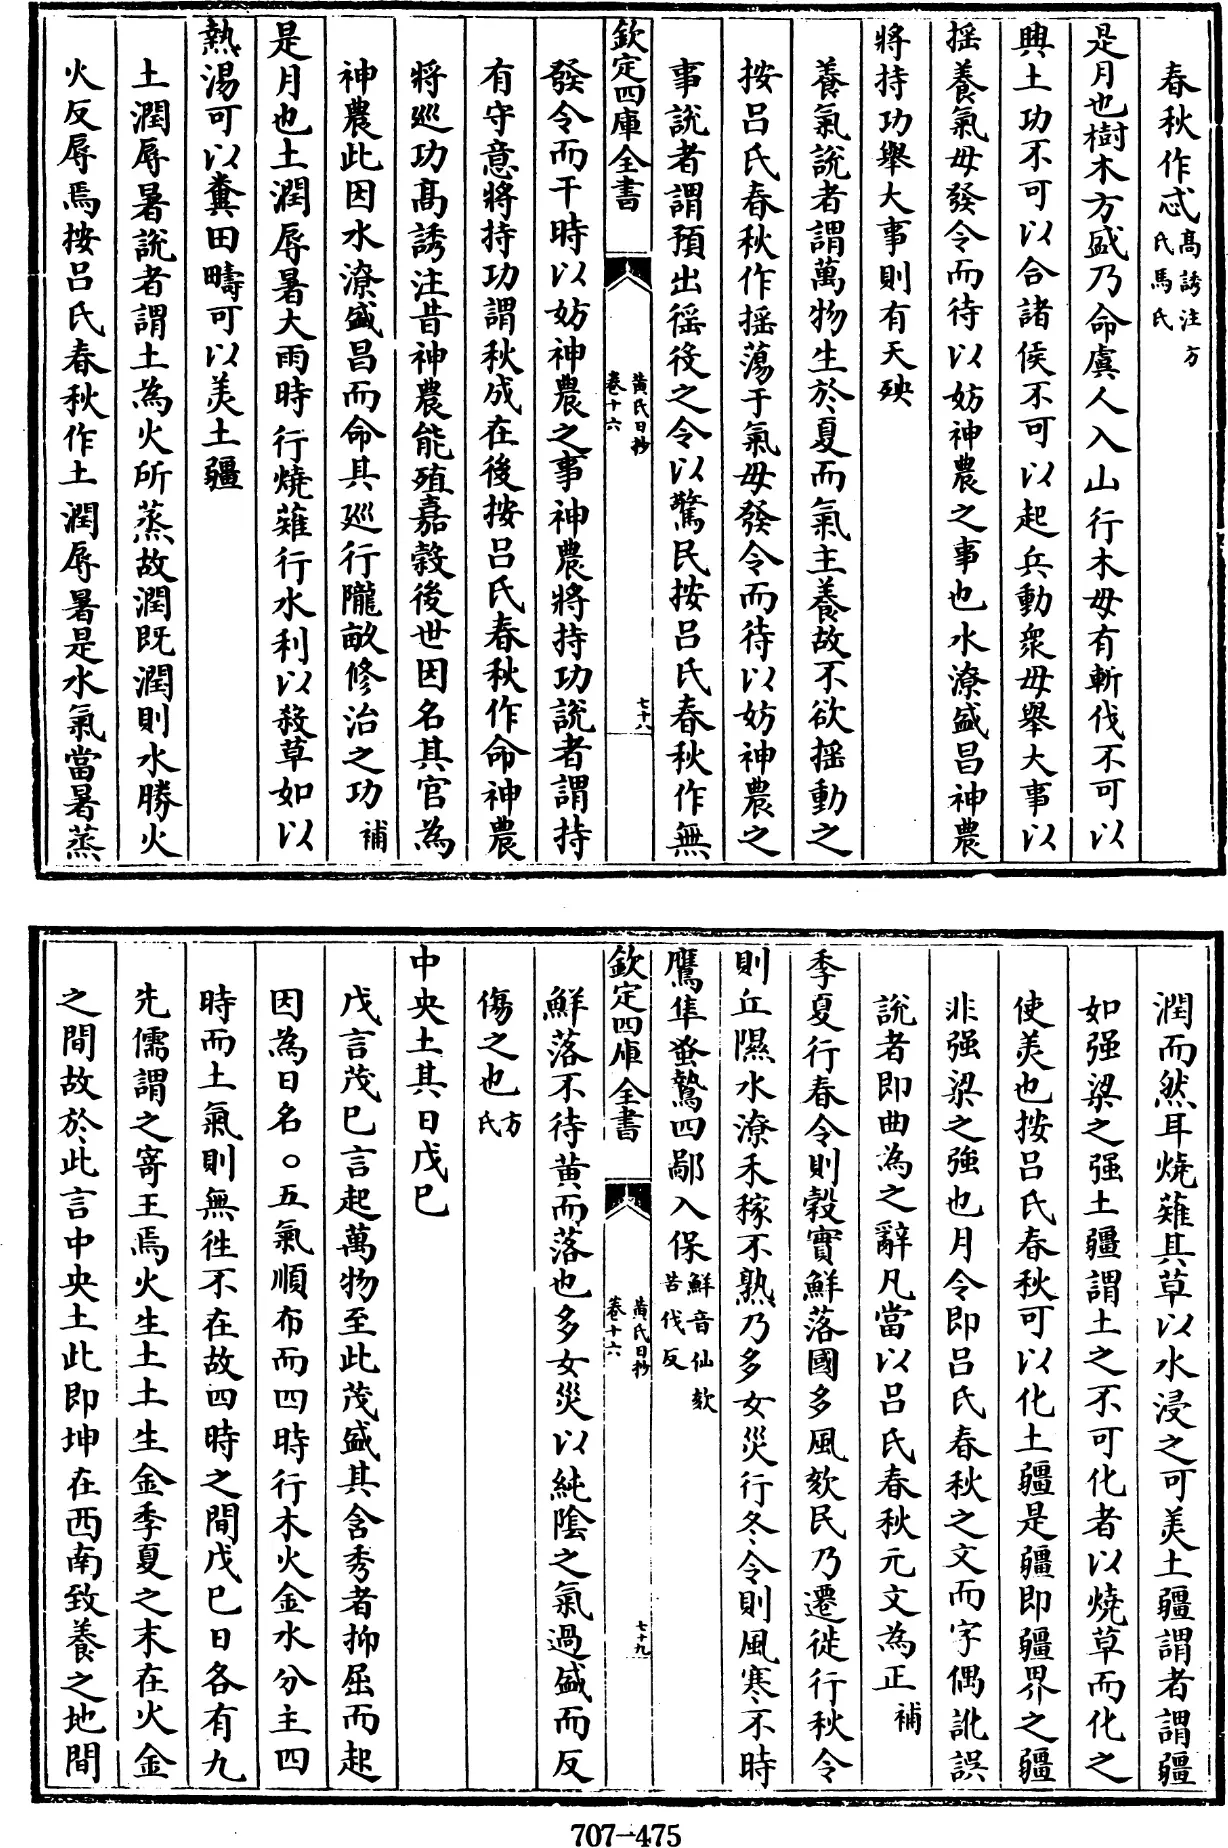 春秋作忒高誘注方氏馬氏
是月也樹木方盛乃命虞人入山行木毋有斬伐不可以
興土功不可以合諸侯不可以起兵動衆毋舉大事以
揺養氣毋發令而待以妨神農之事也水潦盛昌神農
將持功舉大事則有天殃
養氣說者謂萬物生於夏而氣主養故不欲揺動之
按呂氏春秋作揺蕩于氣毋發令而待以妨神農之
事說者謂預出徭役之令以驚民按呂氏春秋作無
欽定四庫全書
黄氏日抄
卷十六
七十八
發令而干時以妨神農之事神農將持功說者謂持
有守意將持功謂秋成在後按呂氏春秋作命神農
將廵功髙誘注昔神農能殖嘉穀後世因名其官為
神農此因水潦盛昌而命其廵行隴畝修治之功補
是月也土潤辱暑大雨時行燒薙行水利以殺草如以
熱湯可以糞田疇可以美土疆
土潤辱暑說者謂土為火所蒸故潤既潤則水勝火
火反辱焉按呂氏春秋作土潤辱暑是水氣當暑蒸
潤而然耳燒薙其草以水浸之可美土疆謂者謂疆
如强梁之强土疆謂土之不可化者以燒草而化之
使美也按呂氏春秋可以化土疆是疆即疆界之疆
非强梁之強也月令即呂氏春秋之文而字偶訛誤
說者即曲為之辭凡當以呂氏春秋元文為正補
季夏行春令則穀實鮮落國多風欬民乃遷徙行秋令
則丘隰水潦禾稼不熟乃多女災行冬令則風寒不時
鷹隼蚤鷙四鄙入保鮮音仙欬苦伐反
欽定四庫全書
黄氏日抄
卷十六
七十九
鮮落不待黄而落也多女災以純陰之氣過盛而反
傷之也方氏
中央土其日戊巳
戊言茂巳言起萬物至此茂盛其含秀者抑屈而起
因為日名○五氣順布而四時行木火金水分主四
時而土氣則無往不在故四時之間戊巳日各有九
先儒謂之寄王焉火生土土生金季夏之末在火金
之間故於此言中央土此即坤在西南致養之地間
707-475